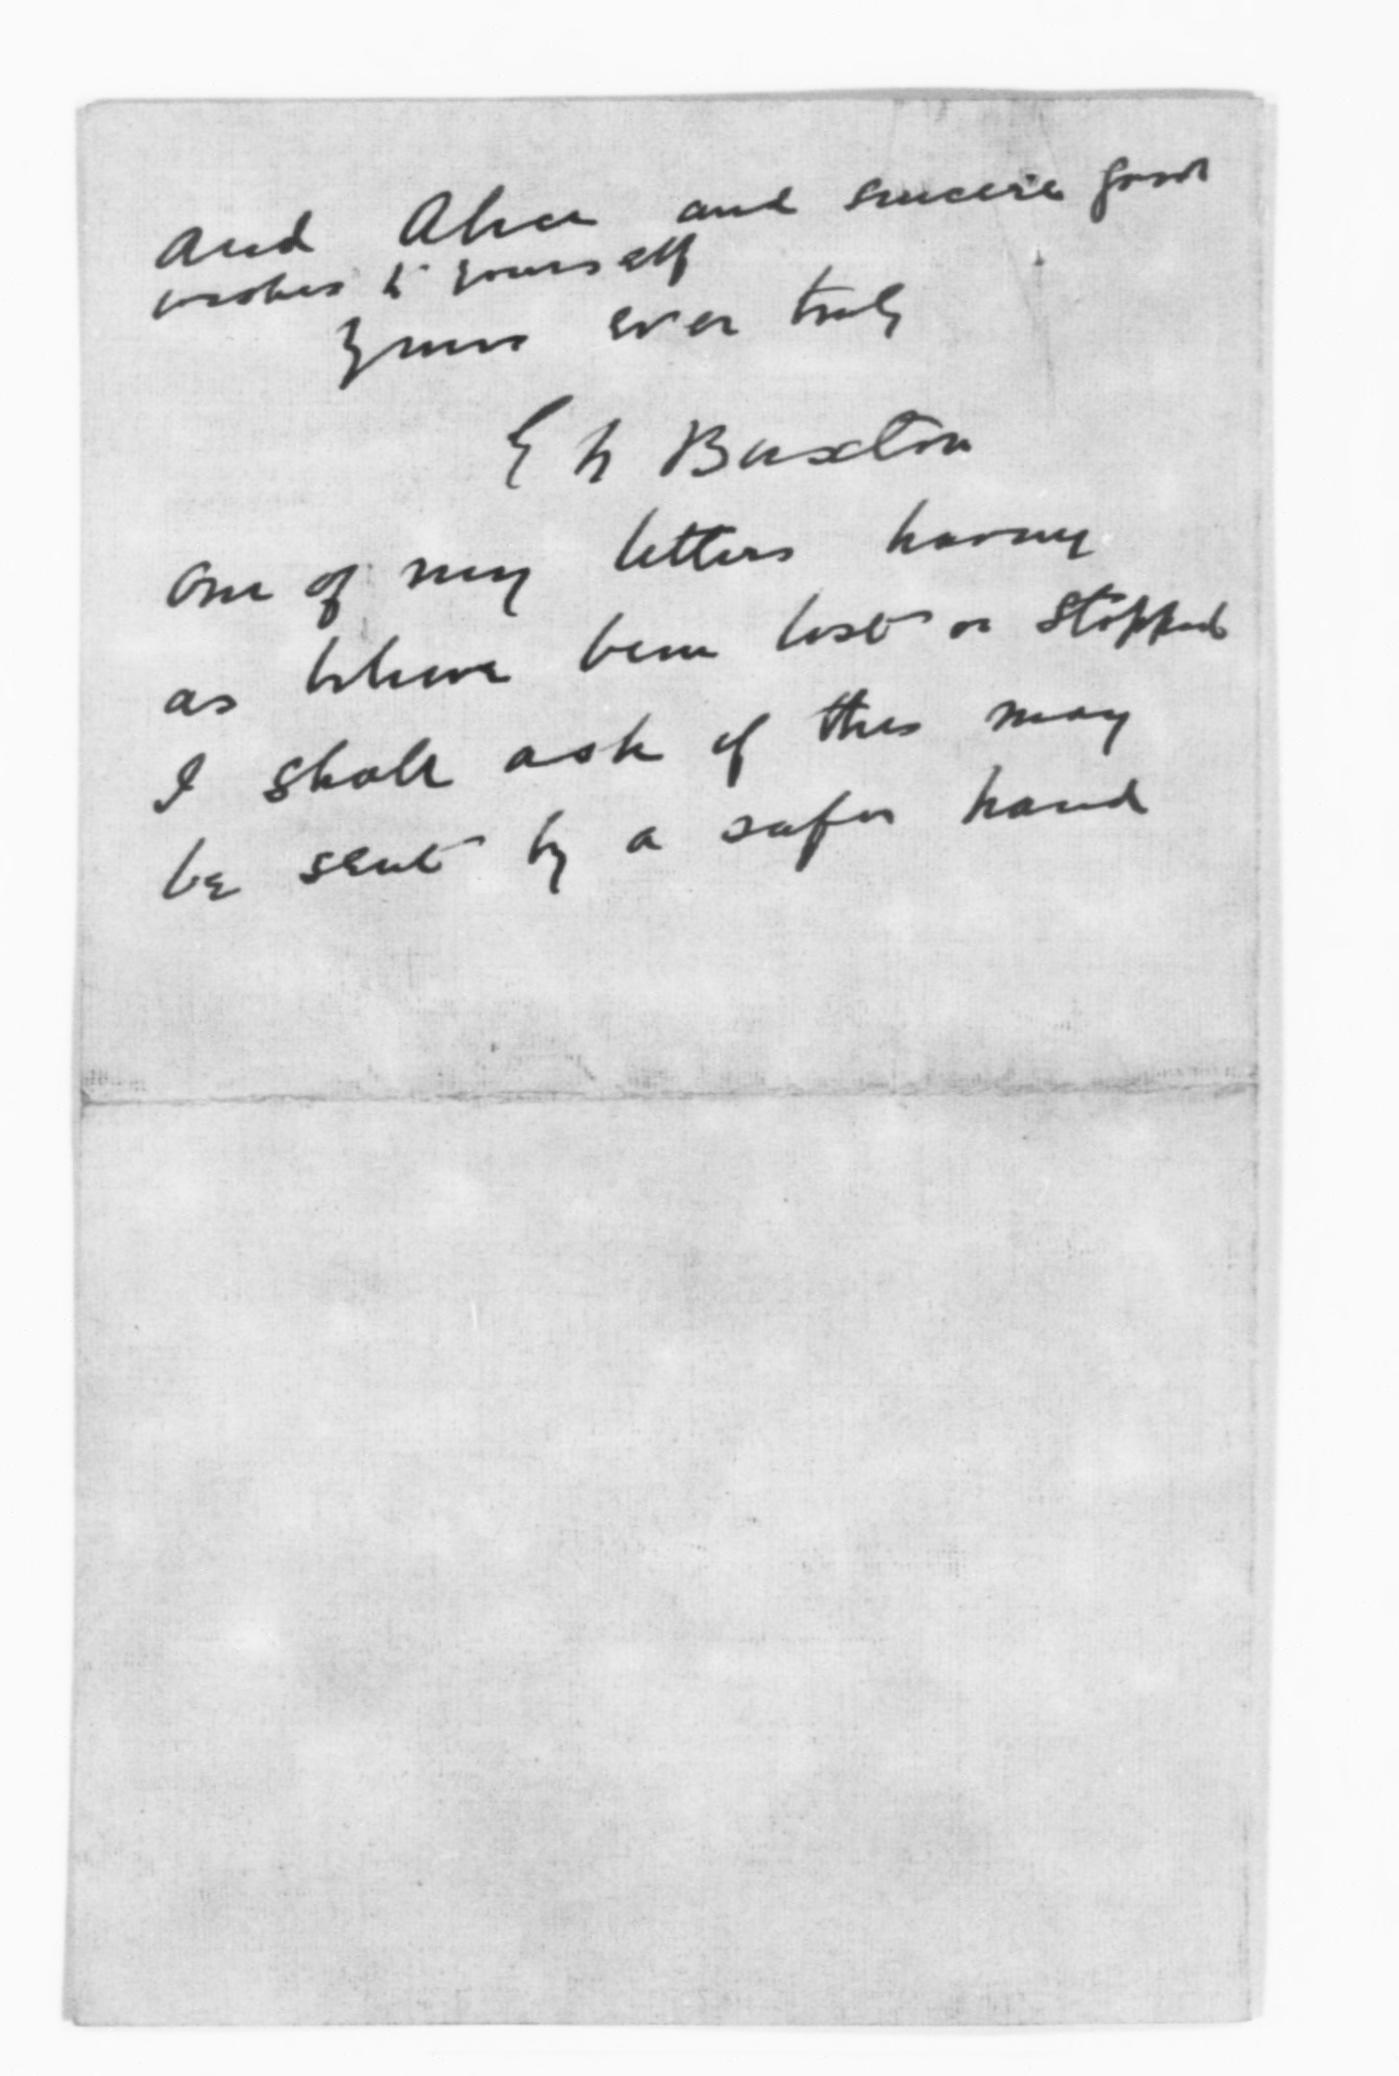 and Alice and sincere good
wishes to yourself
Yours ever truly
E N Buxton
One of my letters having
as believe been lost or stopped
I shall ask if this may
be sent by a safer hand